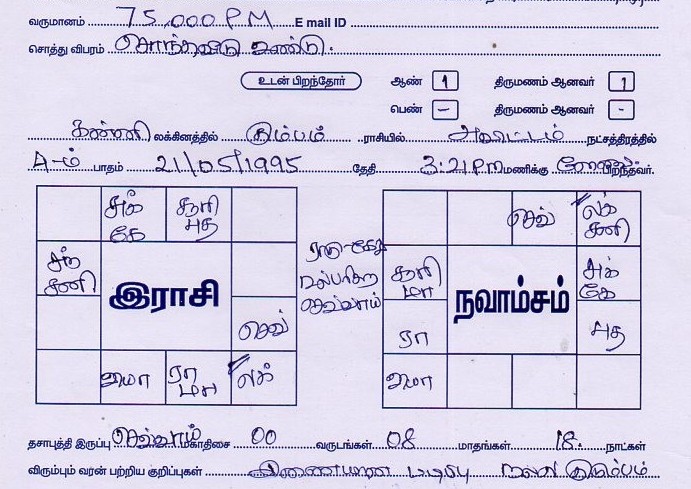 வருமானம் 75,000 P M E mail ID
சொத்து விபரம் சொந்தவீடு உண்டு.
உடன் பிறந்தோர் ஆண் 1 திருமணம் ஆனவர் 1
பெண் - திருமணம் ஆனவர் -
கன்னி லக்கினத்தில் கும்பம் ராசியில் அவிட்டம் நட்சத்திரத்தில்
4-ம் பாதம் 21/05/1995 தேதி 3:21 PM மணிக்கு பிறந்தவர்.
சுக் சூரி செவ் லக்
கே புத சனி
சந் ராகு-கேது சூரி சுக்
சனி இராசி மா நவாம்சம் கே
செவ்வாய்
செவ் ரா புத
வியா ரா லக் வியா
மா
தசாபுத்தி இருப்பு செவ்வாய் மகாதிசை 00 வருடங்கள் 08 மாதங்கள் 18. நாட்கள்
விரும்பும் வரன் பற்றிய குறிப்புகள் இணையான படிப்பு நல்ல குடும்பம்